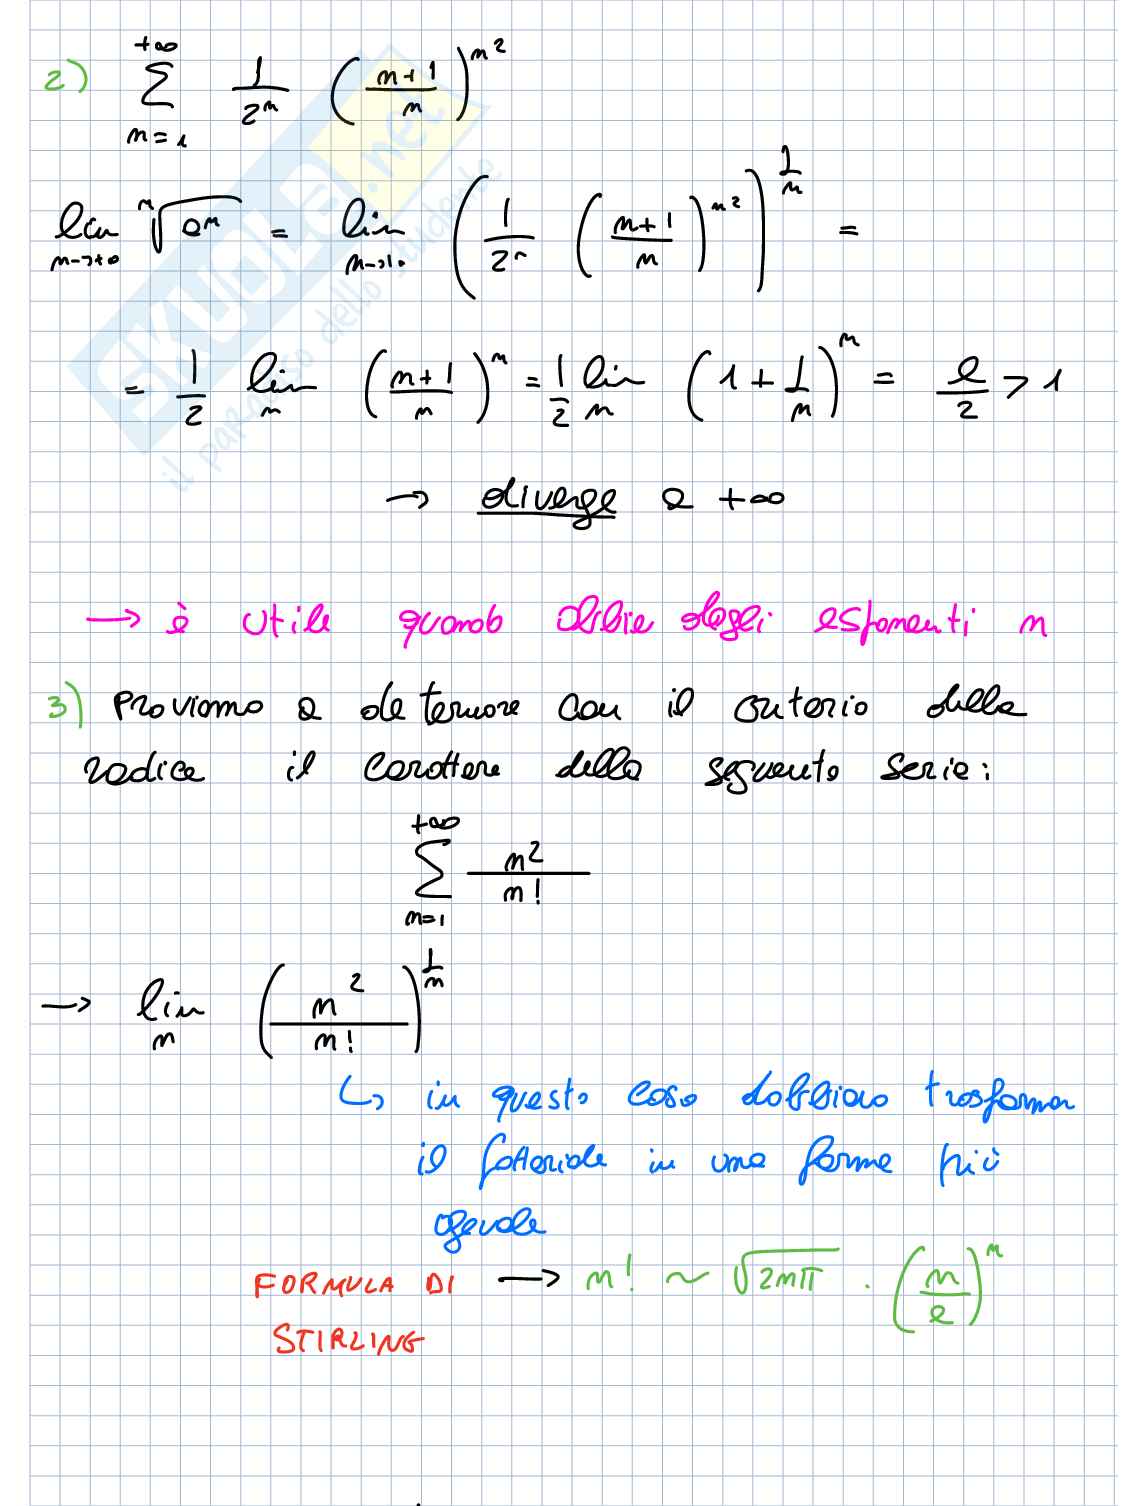 2) \sum_{n=1}^{+\infty} \frac{1}{2^n} \left( \frac{n+1}{n} \right)^{n^2}
\lim_{n \to +\infty} \sqrt[n]{a_n} = \lim_{n \to +\infty} \left( \frac{1}{2^n} \left( \frac{n+1}{n} \right)^{n^2} \right)^{\frac{1}{n}} =
= \frac{1}{2} \lim_{n} \left( \frac{n+1}{n} \right)^n = \frac{1}{2} \lim_{n} \left( 1 + \frac{1}{n} \right)^n = \frac{e}{2} > 1
→ diverge a +∞
→ è utile quando abbiamo degli esponenti n
3) Proviamo a determinare con il criterio della
radice il carattere della seguente serie:
\sum_{n=1}^{+\infty} \frac{n^2}{n!}
→ \lim_{n} \left( \frac{n^2}{n!} \right)^{\frac{1}{n}}
↳ in questo caso dobbiamo trasformare
il fattoriale in una forma più
agevole
FORMULA DI → n! ∼ \sqrt{2nπ} · \left( \frac{n}{e} \right)^n
STIRLING
SKUOLA.net
il paradiso dello studente